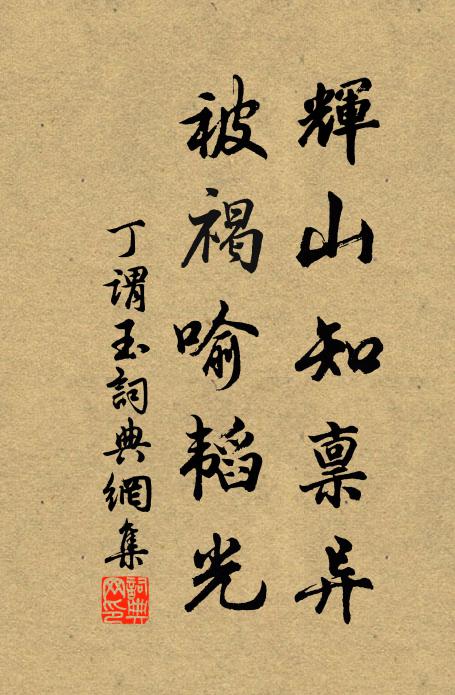 輝山知禀异
被褐喻韬光
丁謂玉詞典網集
詞典網印